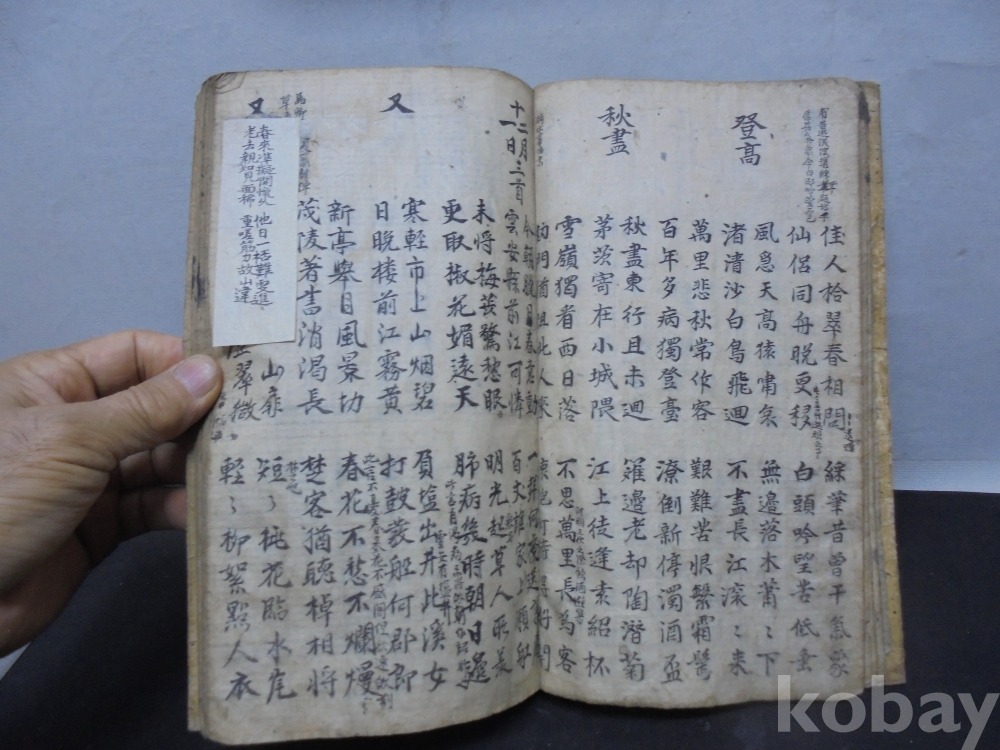 佳人拾翠春相問
仙侶同舟晚更移
綵筆昔曾干氣象
白頭吟望苦低垂
登高
風急天高猿嘯哀
渚清沙白鳥飛迴
無邊落木蕭〻下
不盡長江滾〻来
萬里悲秋常作客
百年多病獨登臺
艱難苦恨繁霜鬢
潦倒新停濁酒盃
秋盡
秋盡東行且未迴
茅茨寄在小城隈
籬邊老却陶潛菊
江上徒逢素紹杯
雪嶺獨看西日落
門猶阻此人來
不思萬里長為客
十二月一日三首
今朝臘月春意動
雲安縣前江可憐
百丈誰家上瀨
未將梅蕊驚愁眼
更取椒花媚遠天
明光起草人所羨
肺病幾時朝日邊
又
寒輕市上山烟碧
日晚楼前江霧黄
負塩出井此溪女
打鼓發舡何郡郎
新亭舉目風景切
茂陵著書消渴長
春花不愁不爛熳
楚客猶聽棹相將
又
山扉
翠微
短〻桃花臨水岸
輕〻柳絮點人衣
春來準擬開懷久
老去親知見面稀
他日一 難 進
重嗟筋力故山違
kobay